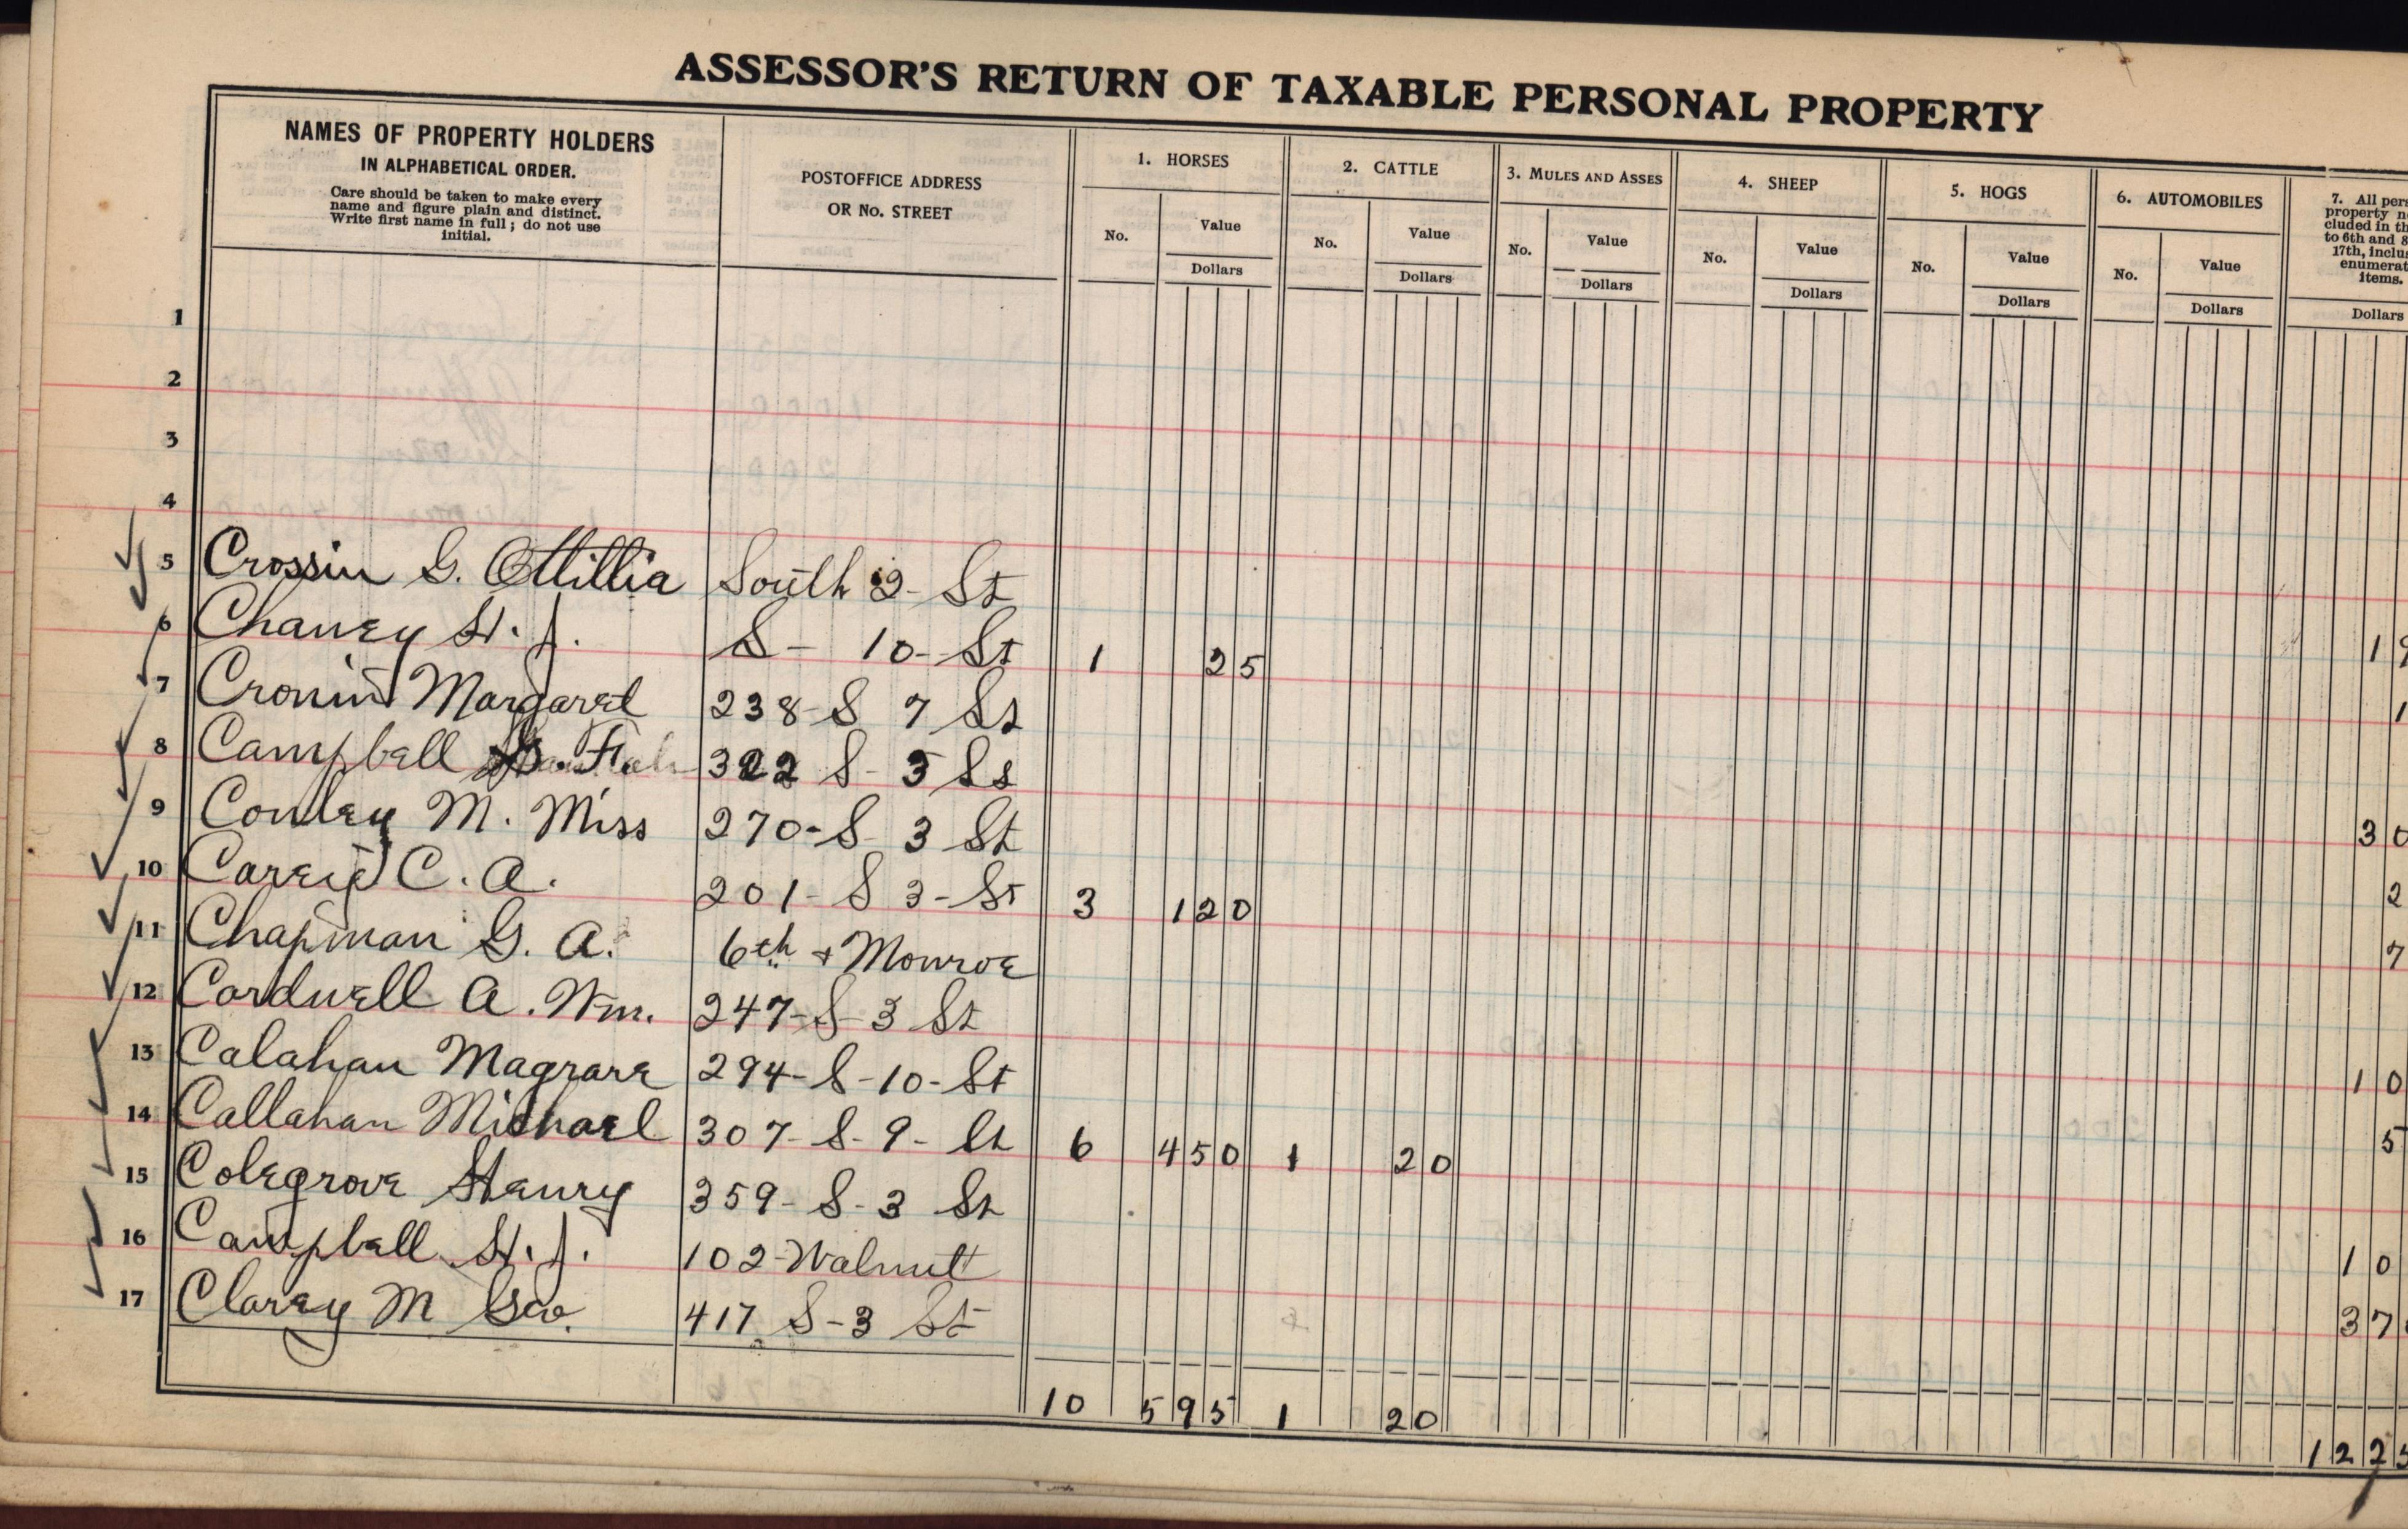 ASSESSOR'S RETURN OF TAXABLE PERSONAL PROPERTY
NAMES OF PROPERTY HOLDERS
IN ALPHABETICAL ORDER.
Care should be taken to make every
name and figure plain and distinct.
Write first name in full; do not use
initial.
POSTOFFICE ADDRESS
OR No. STREET
1. HORSES
No. Value
Dollars
2. CATTLE
No. Value
Dollars
3. MULES AND ASSES
No. Value
Dollars
4. SHEEP
No. Value
Dollars
5. HOGS
No. Value
Dollars
6. AUTOMOBILES
No. Value
Dollars
7. All pers
property n
cluded in th
to 6th and 8
17th, inclus
enumerat
items.
Dollars
1
2
3
4
5 Crossin G. Ottillia South 2- St
6 Chaney H. J. S- 10- St 1 25 19
7 Cronin Margaret 238-S 7 St 1
8 Campbell 322 S- 3 St
9 Conley M. Miss 270-S 3 St 30
10 C. A. 201- S 3- St 3 120 2
11 Chapman G. A. 6th + Monroe 7
12 Cordwell A. Wm. 247-S-3 St
13 Calahan Magrare 294-S-10-St 10
14 Callahan Michael 307-S-9- St 6 450 1 20 5
15 Colegrove Henry 359-S-3 St
16 Campbell H. J. 102-Walnut 10
17 Clarey M Geo. 417 S-3 St 37
10 595 1 20 1225